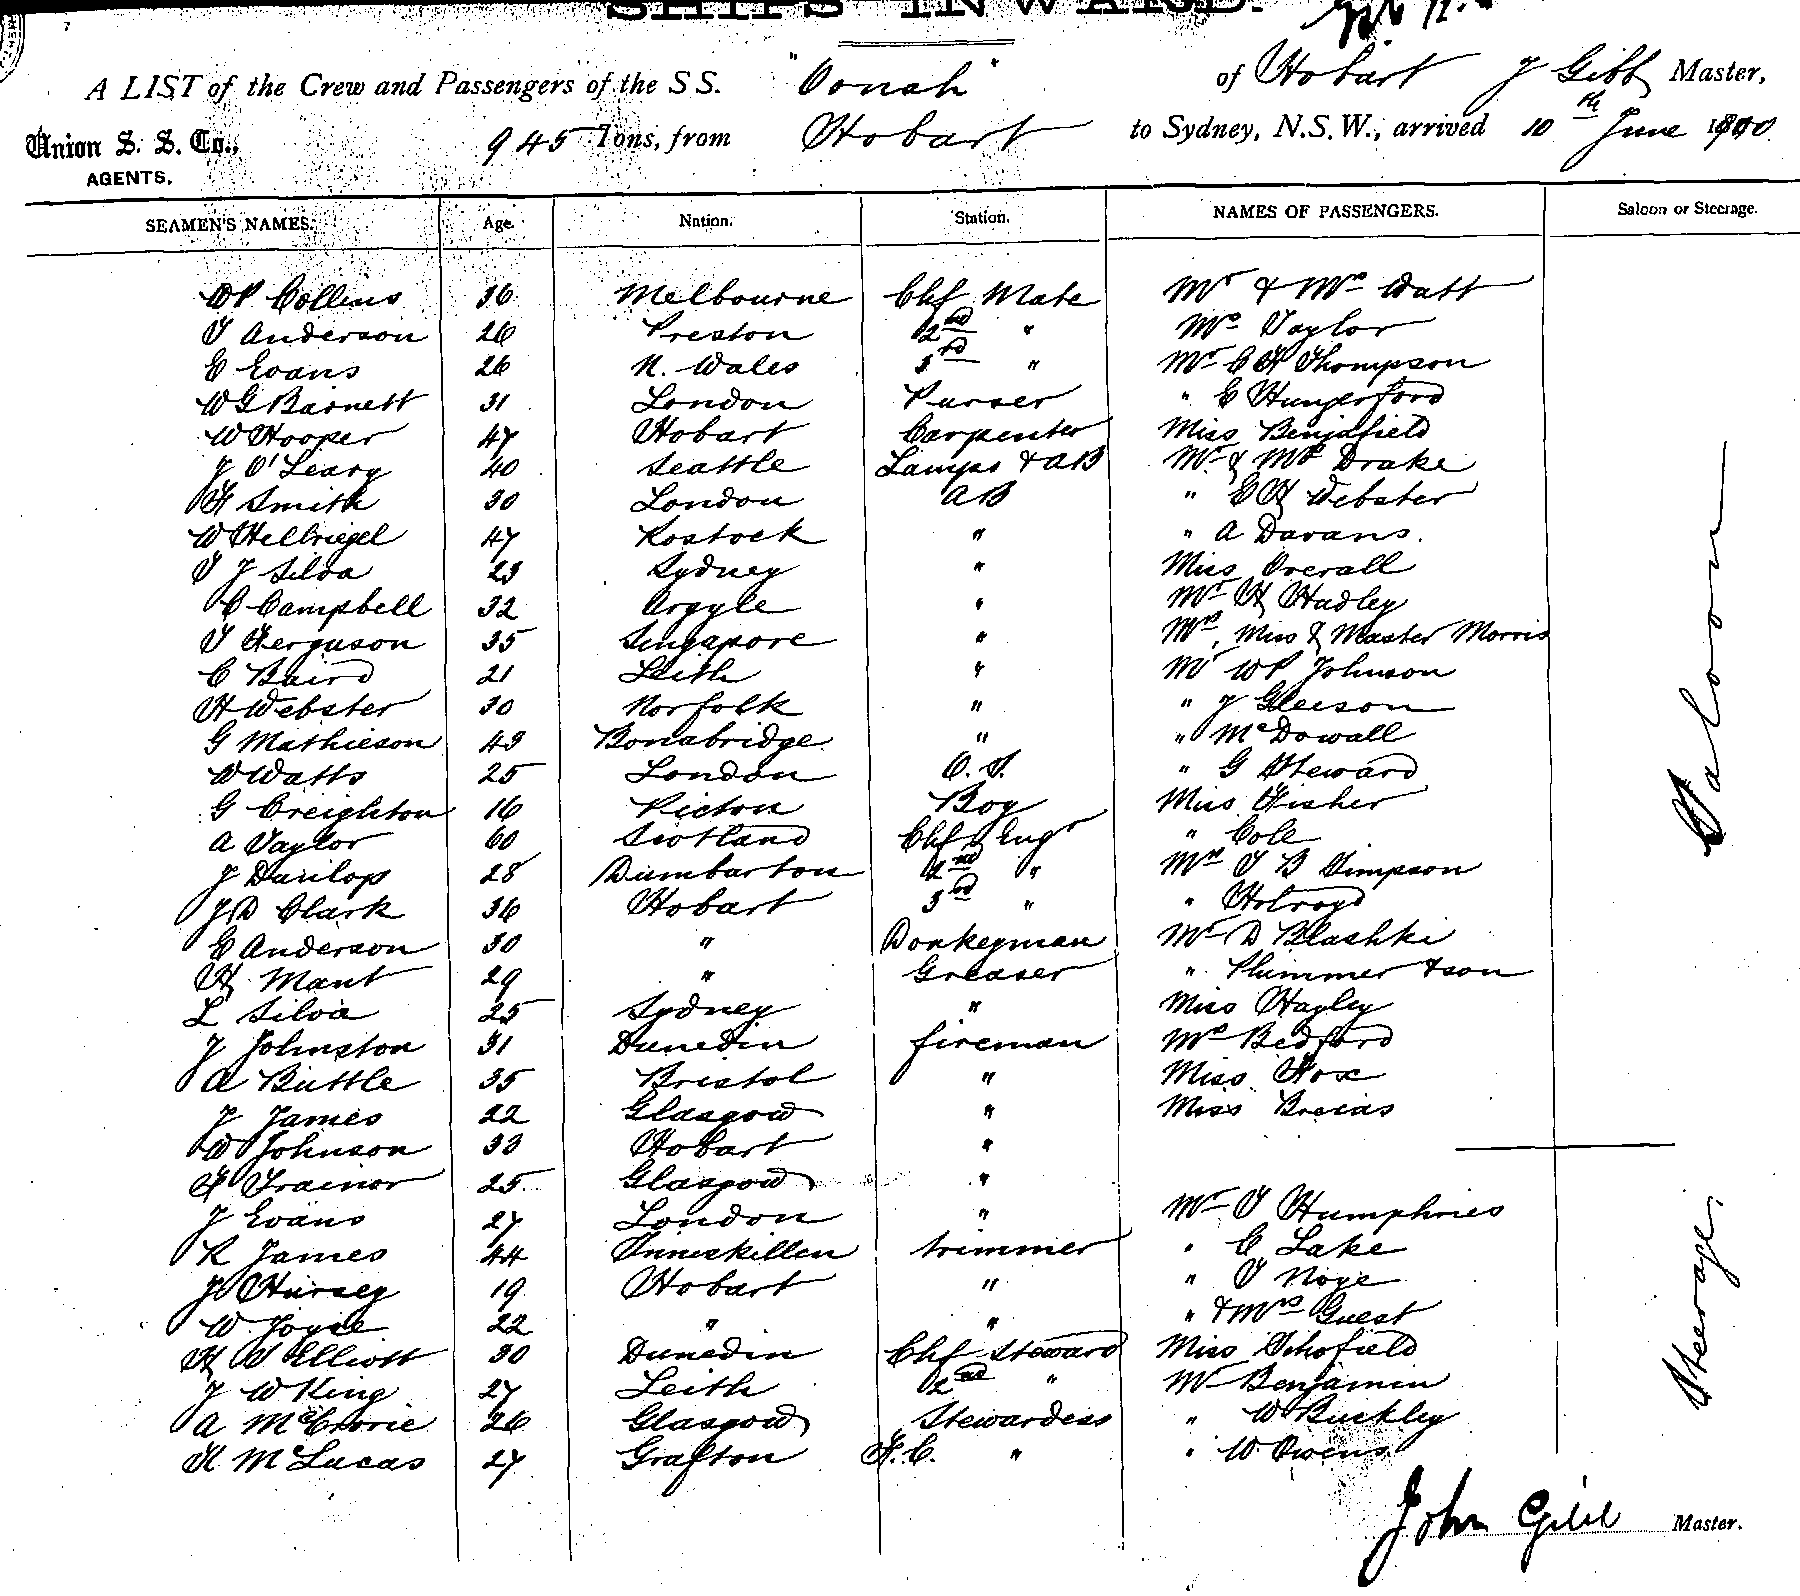 SHIPS INWARD.
A LIST of the Crew and Passengers of the S S. "Oonah" of Hobart J Gibb Master,
Union S. S. Co., 945 Tons, from Hobart to Sydney, N.S.W., arrived 10th June 1900.
AGENTS.
SEAMEN'S NAMES. Age. Nation. Station. NAMES OF PASSENGERS. Saloon or Steerage.
WP Collins 36 Melbourne Chf Mate Mr & Mrs Watt
T Anderson 26 Preston 2nd " Mrs Taylor
E Evans 26 N. Wales 3rd " Mr C H Thompson
W G Barnett 31 London Purser " E Hungerford
W Hooper 47 Hobart Carpenter Miss Benjafield
J O'Leary 40 Seattle Lamps & AB Mr & Mrs Drake
H Smith 30 London AB " E H Webster
W Hellriegel 47 Rostock " " A Davans.
T J Silva 23 Sydney " Miss Overall
C Campbell 32 Argyle " Mr H Hadley
T Ferguson 35 Singapore " Mrs, Miss & Master Morris
C Baird 21 Leith " Mr WP Johnson
H Webster 30 Norfolk " " J Gleeson
G Mathieson 43 Bonabridge " " McDowall
W Watts 25 London O.S. " G Steward
G Creighton 16 Picton Boy Miss Fisher
A Taylor 60 Scotland Chf Engr " Cole
J Dunlop 28 Dumbarton 2nd " Mrs T B Simpson
J D Clark 36 Hobart 3rd " " Holroyd
E Anderson 30 " Donkeyman Mr D Blashki
H Mant 29 " Greaser " Plimmer & son
L Silva 25 Sydney " Miss Hagley
J Johnston 31 Dunedin fireman Mrs Bedford
A Buttle 35 Bristol " Miss Fox
J James 22 Glasgow " Miss Brecas
Saloon
W Johnson 33 Hobart "
F Trainor 25 Glasgow "
J Evans 27 London " Mr T Humphries
R James 44 Inniskillen trimmer " C Lake
J Hursey 19 Hobart " " T Noye
W Joyce 22 " " " & Mrs Guest
H T Elliott 30 Dunedin Chf Steward Miss Schofield
J W King 27 Leith 2nd " Mr Benjamin
A McCrorie 26 Glasgow Stewardess " W Buckley
K McLucas 27 Grafton F.C. " " W Owens
Steerage
John Gibb Master.